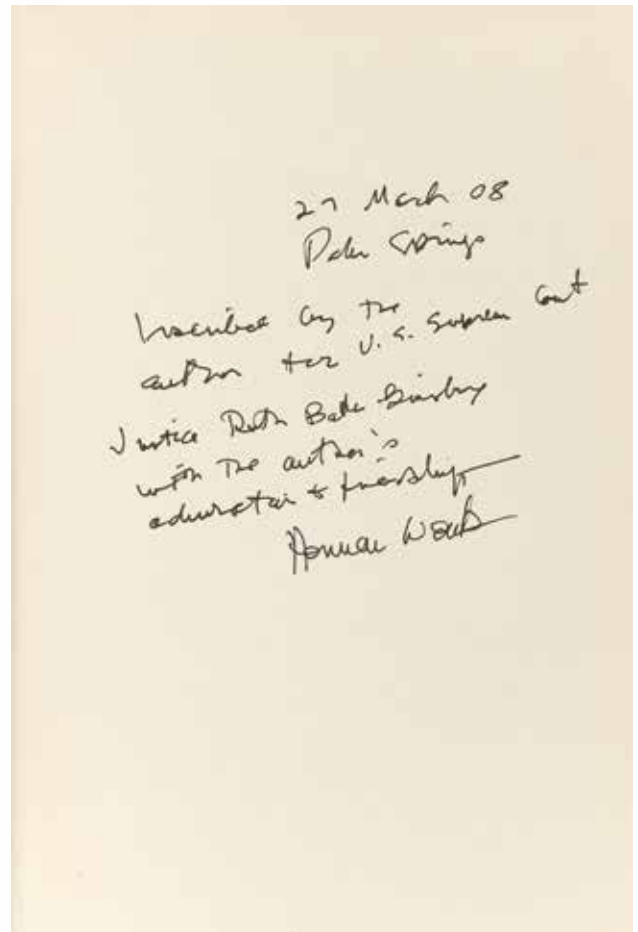 27 March 08
Palm Springs
Inscribed by the
author for U.S. Supreme Court
Justice Ruth Bader Ginsburg
with the author's
admiration & friendship
Herman Wouk